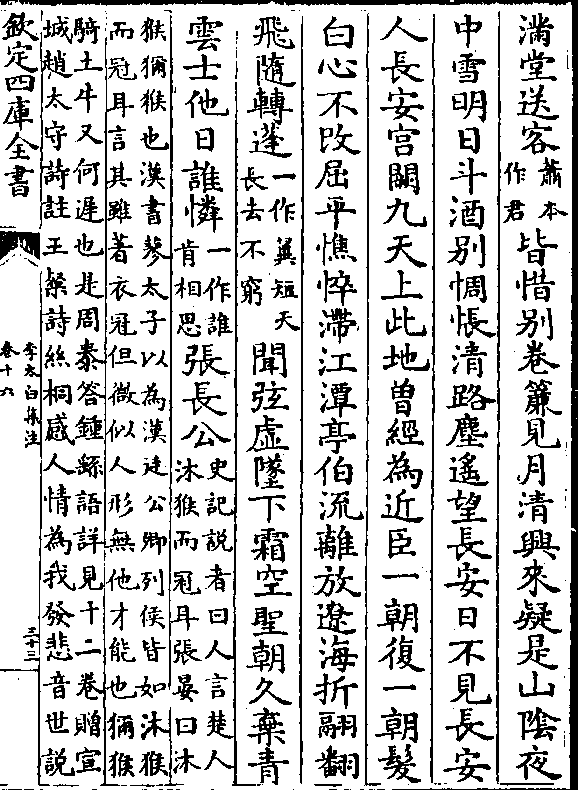 滿堂送客蕭本作君皆惜别卷簾見月清興來疑是山隂夜
中雪明日斗酒别惆悵清路塵遥望長安日不見長安
人長安宫闕九天上此地曽經為近臣一朝復一朝髪
白心不改屈平憔悴滯江潭亭伯流離放遼海折翮翻
飛隨轉蓬一作翼短天長去不窮聞弦虚墜下霜空聖朝久棄青
雲士他日誰憐一作誰肯相思張長公史記説者曰人言楚人沐猴而冠耳張晏曰沐
猴獼猴也漢書蓼太子以為漢廷公卿列侯皆如沐猴
而冠耳言其雖著衣冠但微似人形無他才能也獼猴
騎土牛又何遲也是周泰答鍾繇語詳見十二卷贈宣
城趙太守詩註王粲詩絲桐感人情為我發悲音世説
欽定四庫全書
李太白集注
卷十六
三十三